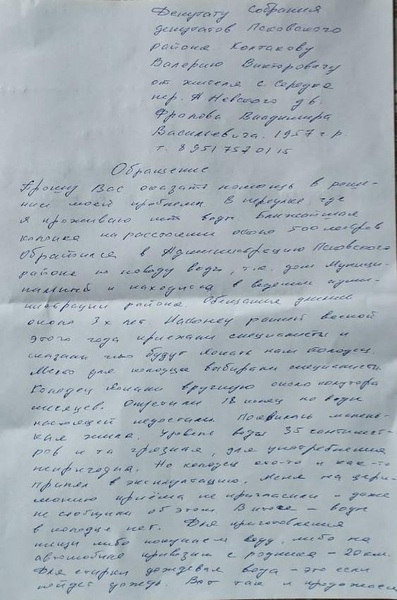 Депутату Собрания
депутатов Псковского
района Колтакову
Валерию Викторовичу
от жителя с. Середка
пер. А Невского д6.
Фролова Владимира
Васильевича. 1957 г.р.
т. 8 951 757 01 15
Обращение
Прошу Вас оказать помощь в реше-
нии моей проблемы. В переулке где
я проживаю нет воды. Ближайшая
колонка на расстоянии около 500 метров
Обратился в Администрацию Псковского
района по поводу воды, т.к. дом Муници-
пальный и находится в ведении адми-
нистрации района. Обещания длились
около 3х лет. Наконец ранней весной
этого года приехали специалисты и
сказали что будут копать нам колодец.
Место для колодца выбирали специалисты
Колодец копали вручную около полутора
месяцев. Опустили 18 колец но воды
настоящей не достали. Появилась малень-
кая жилка. Уровень воды 35 сантимет-
ров и та грязная, для употребления
непригодна. Но колодец кто-то и как-то
принял в эксплуатацию. Меня на цере-
монию приёма не пригласили - даже
не сообщили об этом. В итоге - воды
в колодце нет. Для приготовления
пищи либо покупаем воду, либо на
автомобиле привозим с родника - 20 км.
Для стирки дождевая вода - это если
пойдет дождь. Вот так и продолжаем